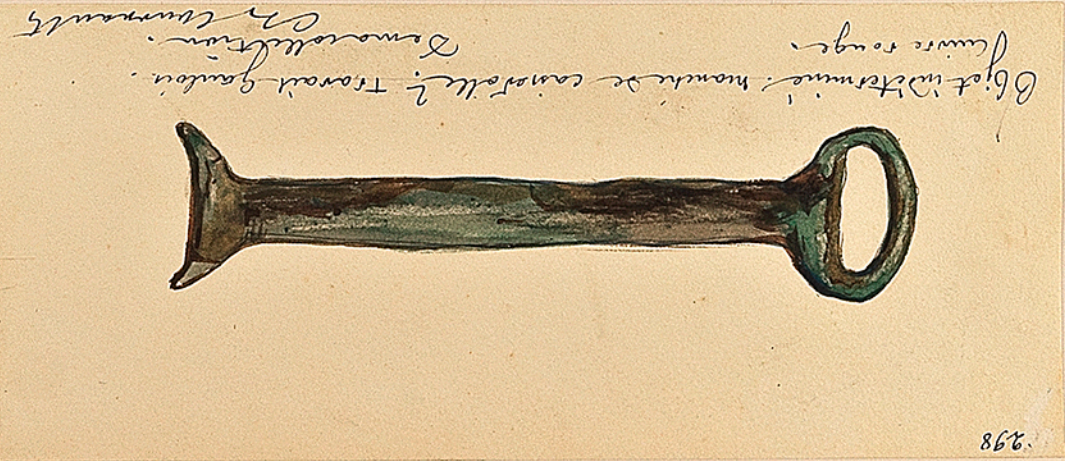 298
Objet indéterminé. manche de casserole? travail gaulois.
Cuivre rouge. De ma collection.
Ch Cournault